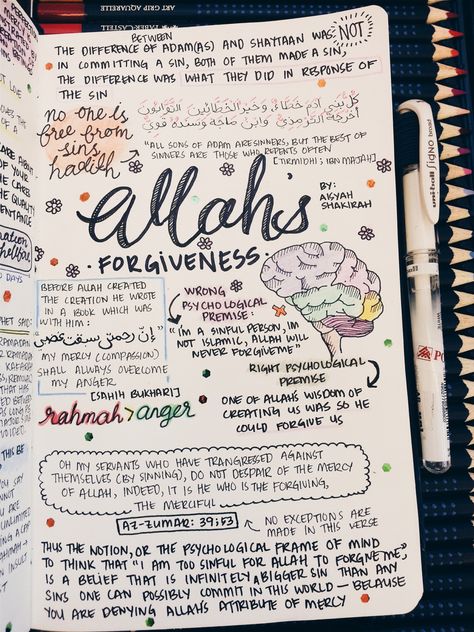 THE DIFFERENCE BETWEEN OF ADAM(AS) AND SHAYTAAN WAS NOT
IN COMMITTING A SIN, BOTH OF THEM MADE A SIN,
THE DIFFERENCE WAS WHAT THEY DID IN RESPONSE OF
THE SIN
no one is
free from
sins,
hadith
كل بني آدم خطاء، وخير الخطائين التوابون
أخرجه الترمذي وابن ماجة وسنده قوي
"ALL SONS OF ADAM ARE SINNERS, BUT THE BEST OF
SINNERS ARE THOSE WHO REPENTS OFTEN
[TIRMIDHI & IBN MAJAH]
Allah's
FORGIVENESS
BY:
AISYAH
SHAKIRAH
BEFORE ALLAH CREATED
THE CREATION HE WROTE
IN A BOOK WHICH WAS
WITH HIM:
"إن رحمتي سبقت غضبي"
MY MERCY (COMPASSION)
SHALL ALWAYS OVERCOME
MY ANGER
[SAHIH BUKHARI]
rahmah > anger
WRONG
PSYCHOLOGICAL
PREMISE:
"I'M A SINFUL PERSON, IM
NOT ISLAMIC, ALLAH WILL
NEVER FORGIVE ME"
RIGHT PSYCHOLOGICAL
PREMISE
ONE OF ALLAH'S WISDOM OF
CREATING US WAS SO HE
COULD FORGIVE US
OH MY SERVANTS WHO HAVE TRANGRESSED AGAINST
THEMSELVES (BY SINNING), DO NOT DESPAIR OF THE MERCY
OF ALLAH, INDEED, IT IS HE WHO IS THE FORGIVING,
THE MERCIFUL
AZ-ZUMAR: 39:53
NO EXCEPTIONS ARE
MADE IN THIS VERSE
THUS THE NOTION, OR THE PSYCHOLOGICAL FRAME OF MIND
TO THINK THAT "I AM TOO SINFUL FOR ALLAH TO FORGIVE ME,"
IS A BELIEF THAT IS INFINITELY A BIGGER SIN THAN ANY
SINS ONE CAN POSSIBLY COMMIT IN THIS WORLD — BECAUSE
YOU ARE DENYING ALLAH'S ATTRIBUTE OF MERCY
ART GRIP AQUARELLE
FABER-CASTELL
uni-ball SIGNO broad